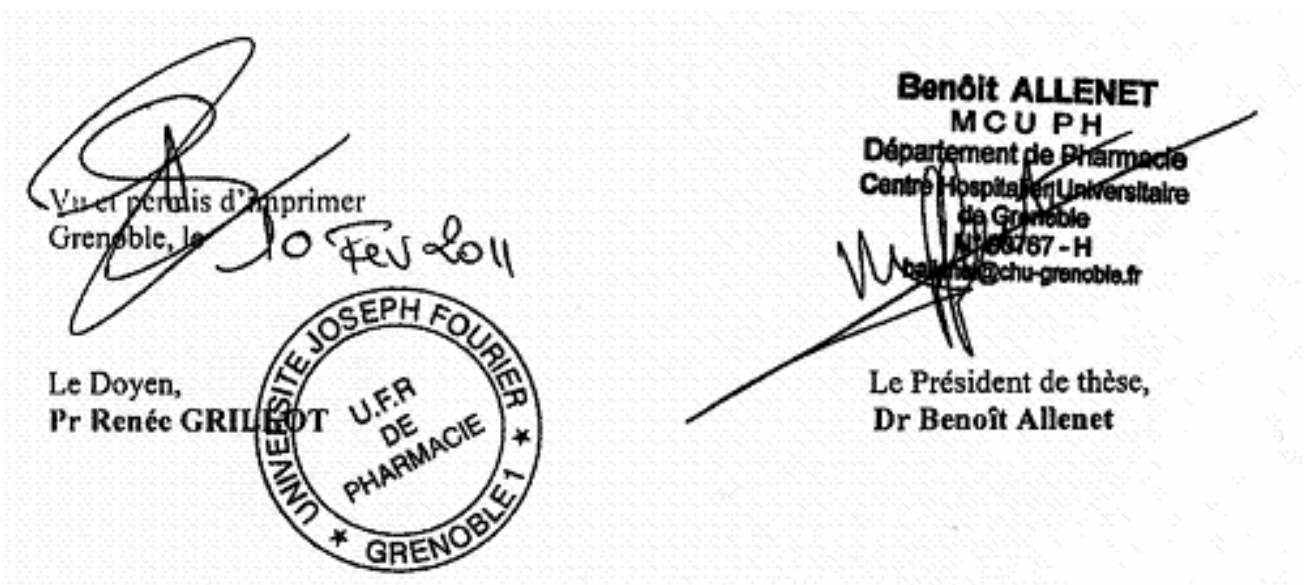 Vu et permis d'imprimer
Grenoble, le 10 Fev 2011
Le Doyen,
Pr Renée GRILLOT
UNIVERSITE JOSEPH FOURIER
★ GRENOBLE 1 ★
U.F.R
DE
PHARMACIE
Benôit ALLENET
MCU PH
Département de Pharmacie
Centre Hospitalier Universitaire
de Grenoble
- H
@chu-grenoble.fr
Le Président de thèse,
Dr Benoît Allenet